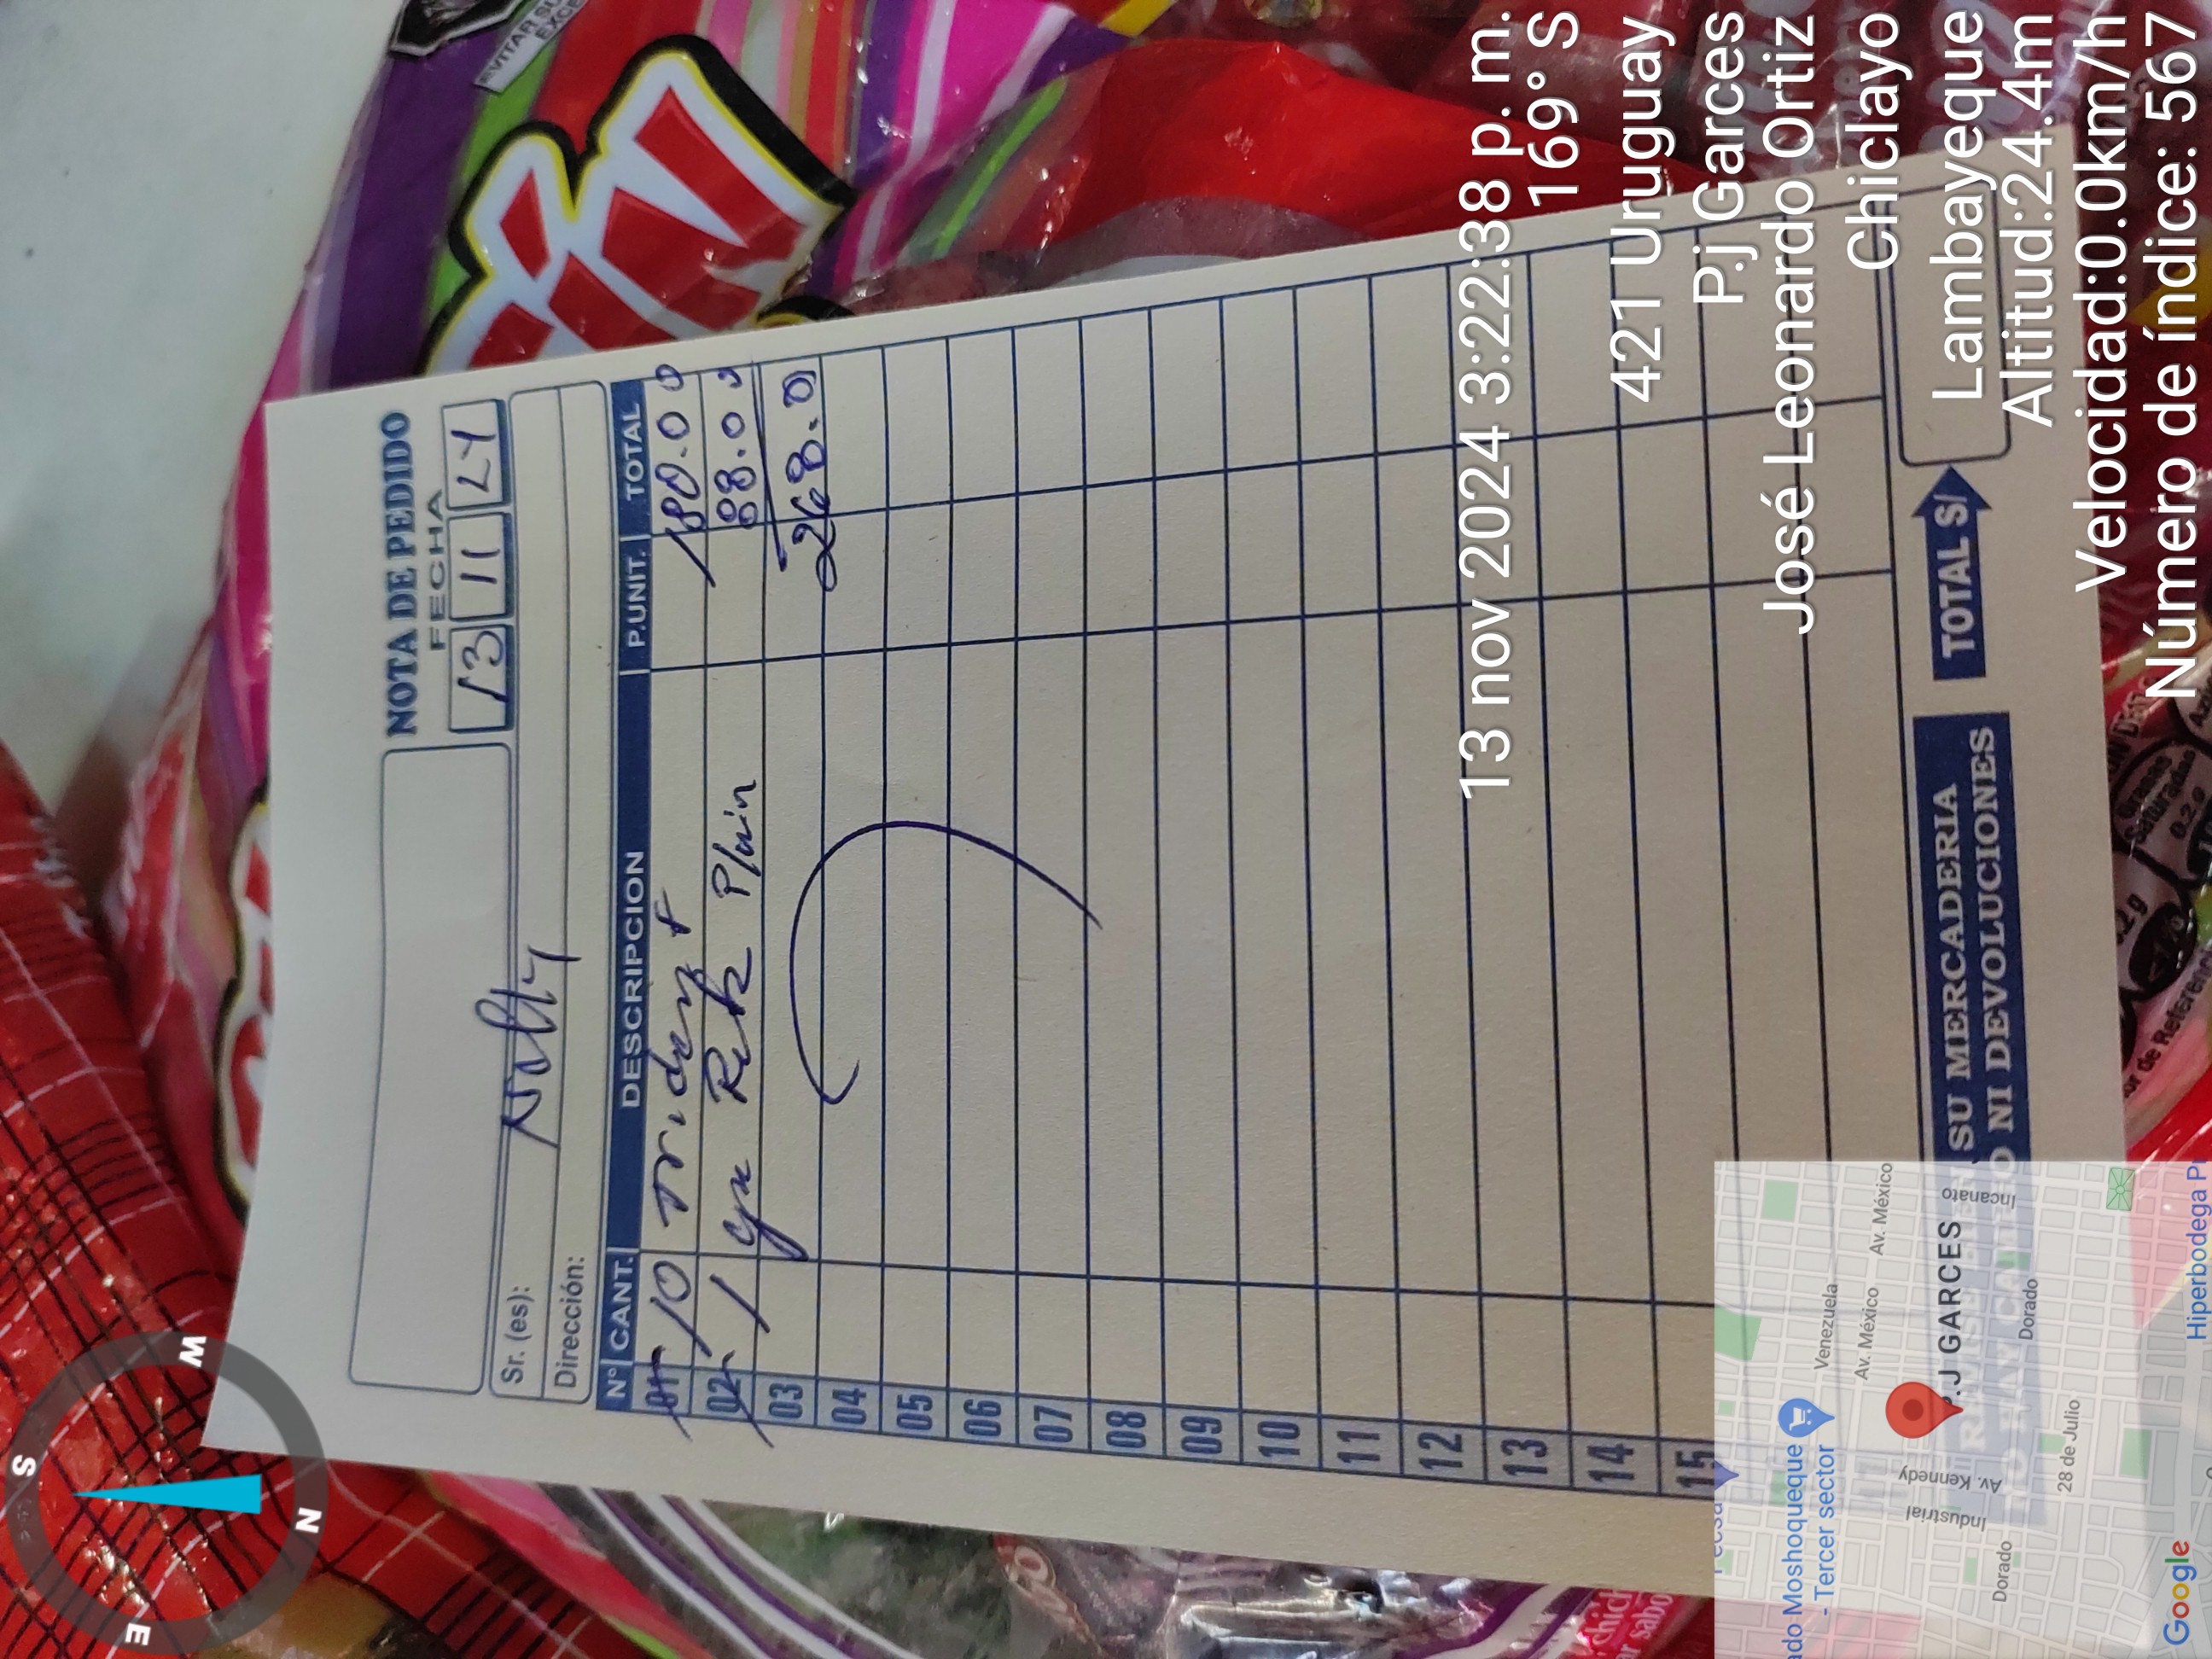 S
E
W
N
NOTA DE PEDIDO
FECHA
13 11 24
Sr. (es): Nelly
Dirección:
Nº CANT. DESCRIPCION P.UNIT. TOTAL
01 10 Trident 180.00
02 1 88.00
03 268.0
04
05
06
07
08
09
10
11
12
13
14
15
REVISE BIEN SU MERCADERIA
NO HAY CAMBIO NI DEVOLUCIONES
TOTAL S/
EVITAR SU
EXCE
13 nov 2024 3:22:38 p. m.
169° S
421 Uruguay
P.j Garces
José Leonardo Ortiz
Chiclayo
Lambayeque
Altitud:24.4m
Velocidad:0.0km/h
Número de índice: 567
Pecsa
ado Moshoqueque
- Tercer sector
Venezuela
Av. México
Av. México
Industrial
Av. Kennedy
P.J GARCES
Incanato
Dorado
Dorado
28 de Julio
Google
Hiperbodega P
Grasas
Saturadas
0.2 g